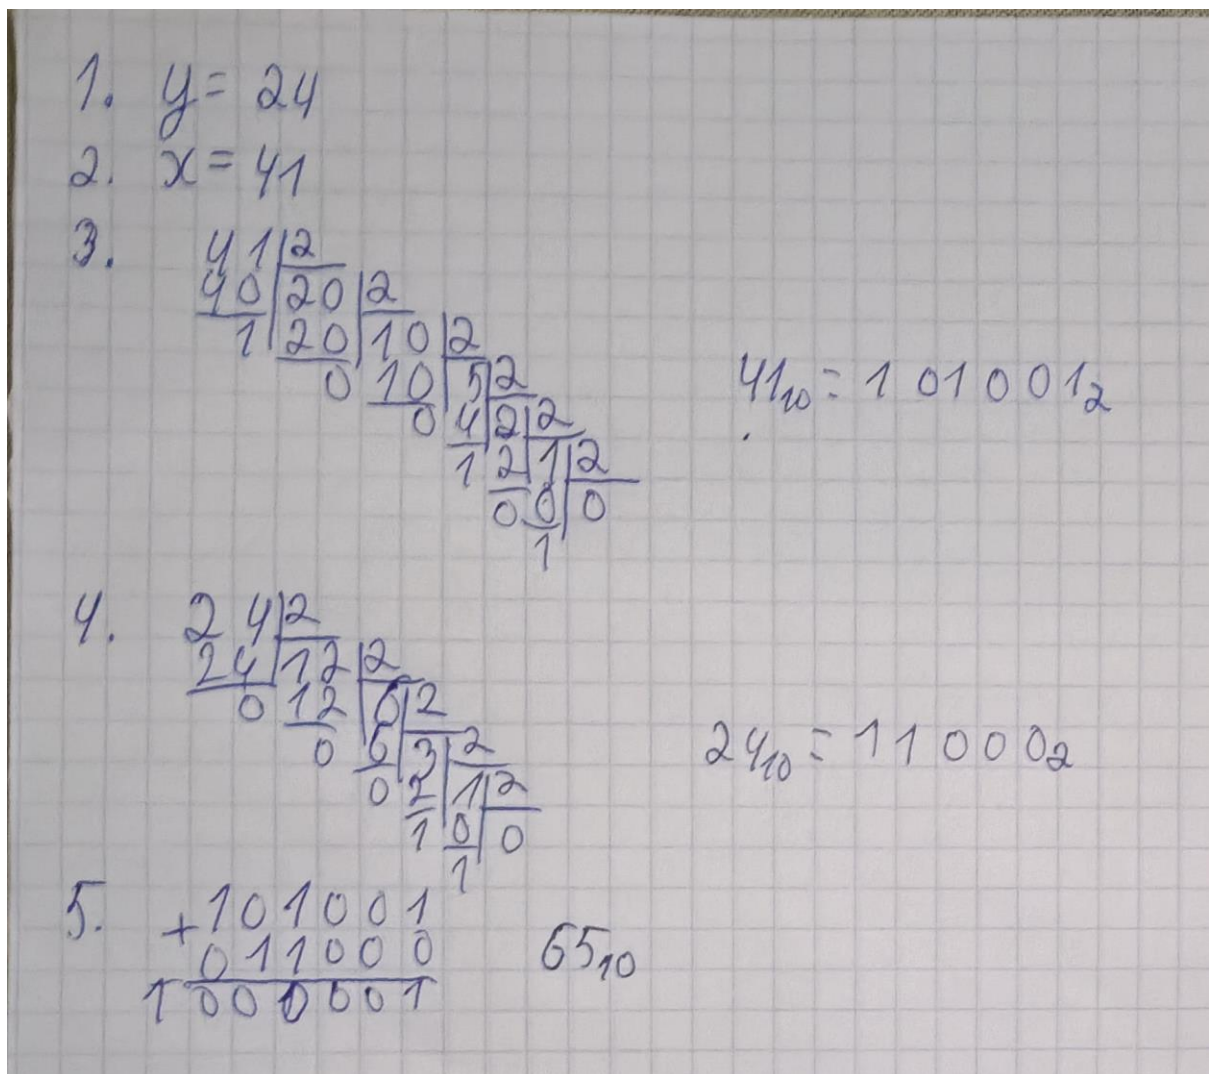 1. y = 24
2. x = 41
3. 41 2
40 20 2
1 20 10 2
0 10 5 2
0 4 2 2
1 2 1 2
0 0 0
1
41₁₀ = 101001₂
4. 24 2
24 12 2
0 12 6 2
0 6 3 2
0 2 1 2
1 0 0
1
24₁₀ = 11000₂
5. +101001
011000
1000001
65₁₀